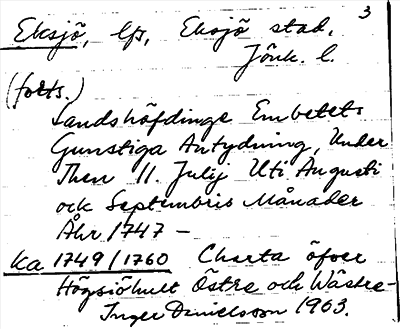 3
Eksjö, lfs, Eksjö stad,
Jönk. l.
(forts.)
Landshöfdinge Embetets
Gunstiga Antydning, Under
Then 11. Julij Uti Augusti
ock Septembris Månader
Åhr 1747 –
Ka 1749/1760 Charta öfver
Högsiöhult Östre och Wästre-
Inger Danielsson 1963.